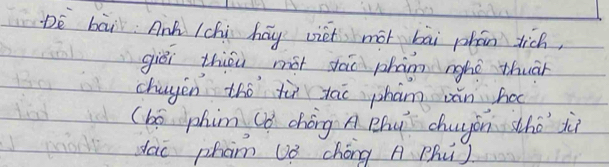 Đề bài: Anh / chị hãy viết một bài phân tích,
giới thiệu một tác phẩm nghệ thuật
chuyển thể từ tác phẩm văn học
(bộ phim Vợ chồng A Phủ chuyển thể từ
tác phẩm Vợ chồng A Phủ)